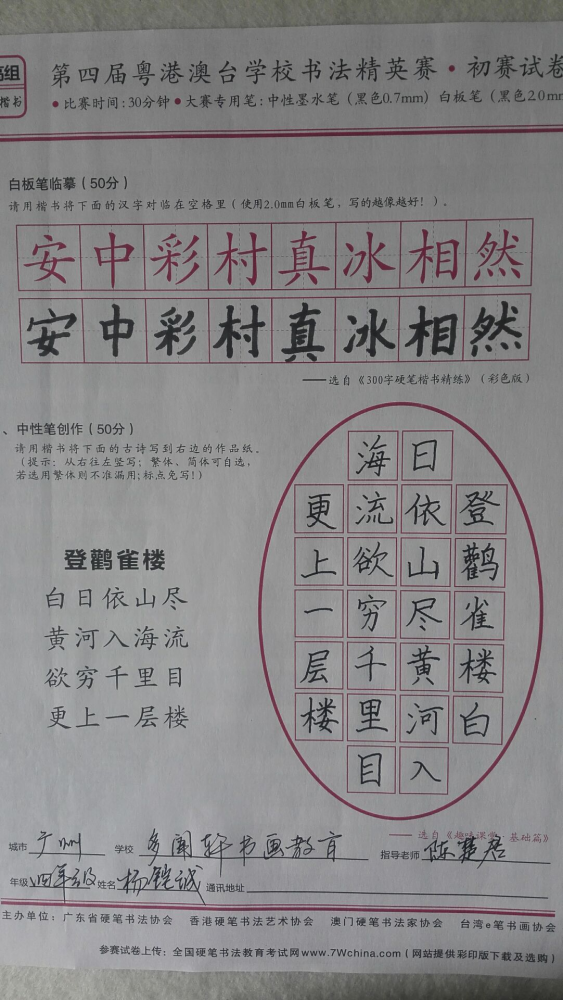 高组
楷书
第四届粤港澳台学校书法精英赛·初赛试卷
●比赛时间:30分钟●大赛专用笔:中性墨水笔（黑色0.7mm）白板笔（黑色2.0mm
白板笔临摹（50分）
请用楷书将下面的汉字对临在空格里（使用2.0mm白板笔，写的越像越好！）。
安中彩村真冰相然
安中彩村真冰相然
——选自《300字硬笔楷书精练》（彩色版）
、中性笔创作（50分）
请用楷书将下面的古诗写到右边的作品纸。
（提示：从右往左竖写；繁体、简体可自选，
若选用繁体则不准漏用;标点免写！）
登鹳雀楼
白日依山尽
黄河入海流
欲穷千里目
更上一层楼
登鹳雀楼白
日依山尽黄河入
海流欲穷千里目
更上一层楼
——选自《趣味课堂·基础篇》
城市 广州 学校 多闻轩书画教育 指导老师 陈楚君
年级 四年级 姓名 杨锐诚 通讯地址
主办单位：广东省硬笔书法协会 香港硬笔书法艺术协会 澳门硬笔书法家协会 台湾e笔书画协会
参赛试卷上传：全国硬笔书法教育考试网www.7Wchina.com（网站提供彩印版下载及选购）